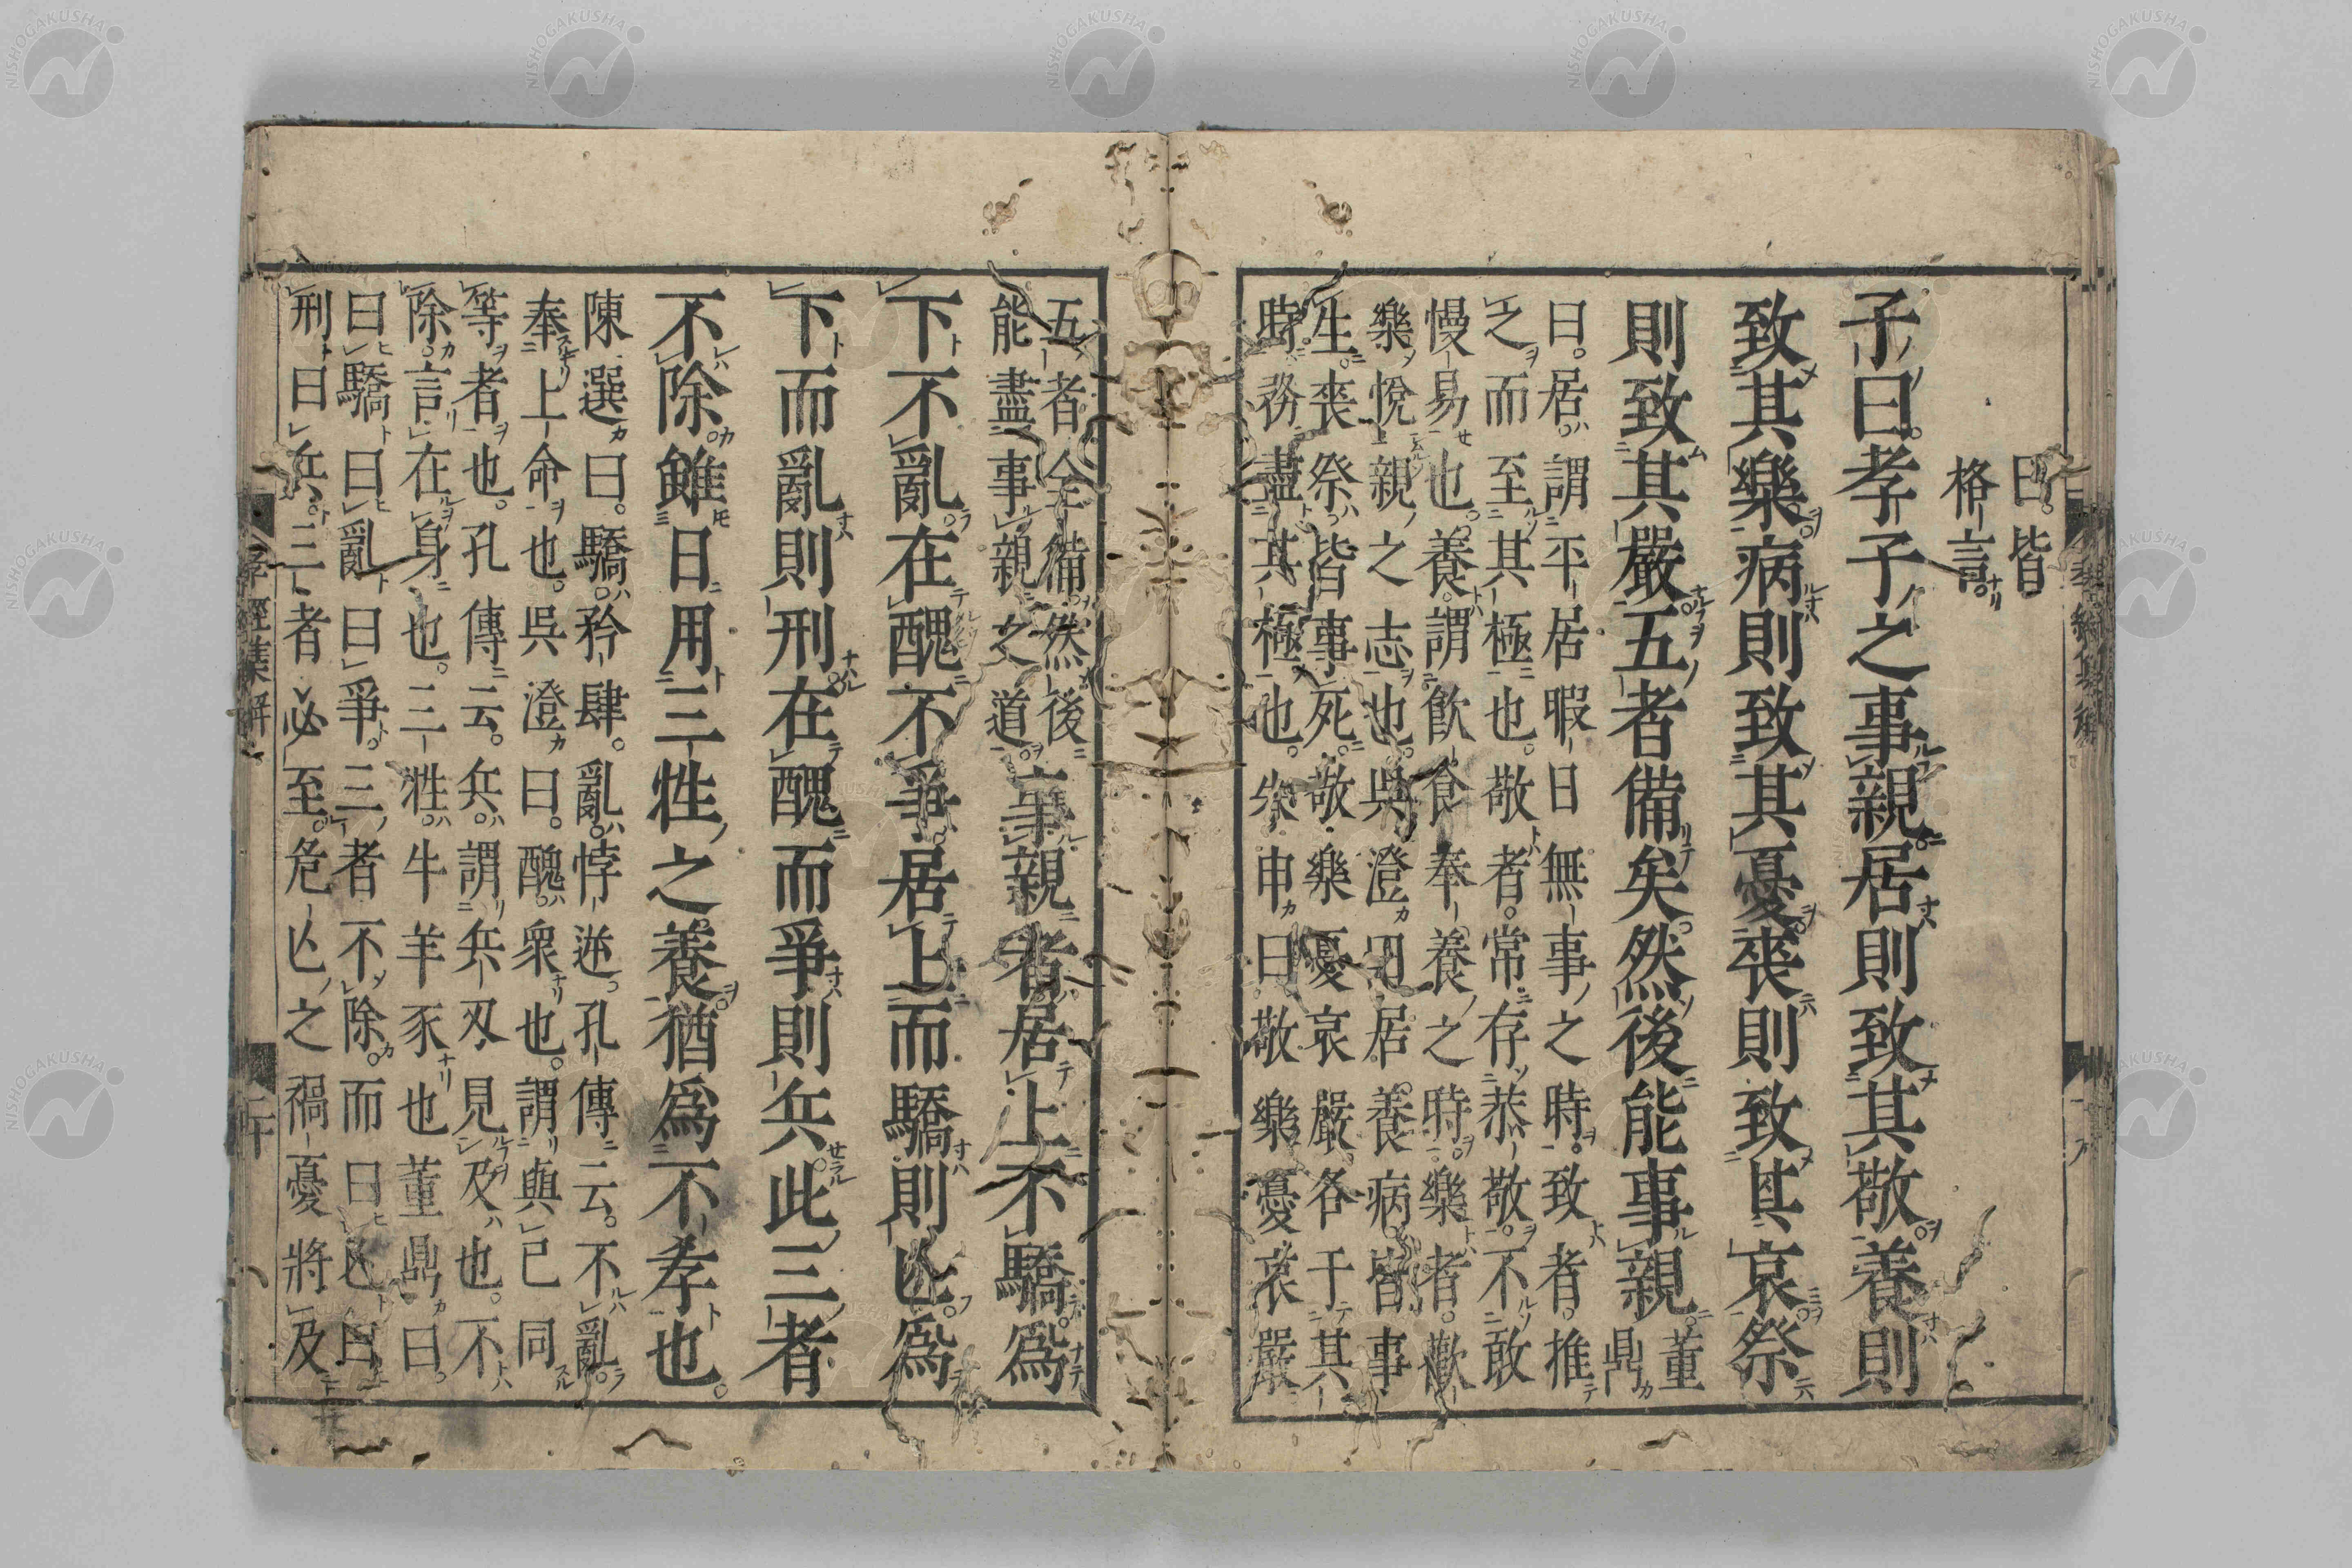 曰皆
格言
子曰孝子之事親居則致其敬養則
致其樂病則致其憂喪則致其哀祭
則致其嚴五者備矣然後能事親
董
鼎
曰居謂平居暇日無事之時致者推
之而至其極也敬者常存恭敬不敢
慢易也養謂飲食奉養之時樂者歡
樂悅親之志也吳澄曰居養病皆事
生喪祭皆事死敬樂憂哀嚴各于其
時務盡其極也柴申曰敬樂憂哀嚴
五者全備然後
能盡事親之道
事親者居上不驕爲
下不亂在醜不爭居上而驕則亡爲
下而亂則刑在醜而爭則兵此三者
不除雖日用三牲之養猶爲不孝也
陳選曰驕矜肆亂悖逆孔傳云不亂
奉上命也吳澄曰醜衆也謂與已同
等者也孔傳云兵謂兵刄見及也不
除言在身也三牲牛羊豕也董鼎曰
曰驕曰亂曰爭三者不除而曰亡曰
刑曰兵三者必至危亡之禍憂將及
孝經集解
NISHOGAKUSHA